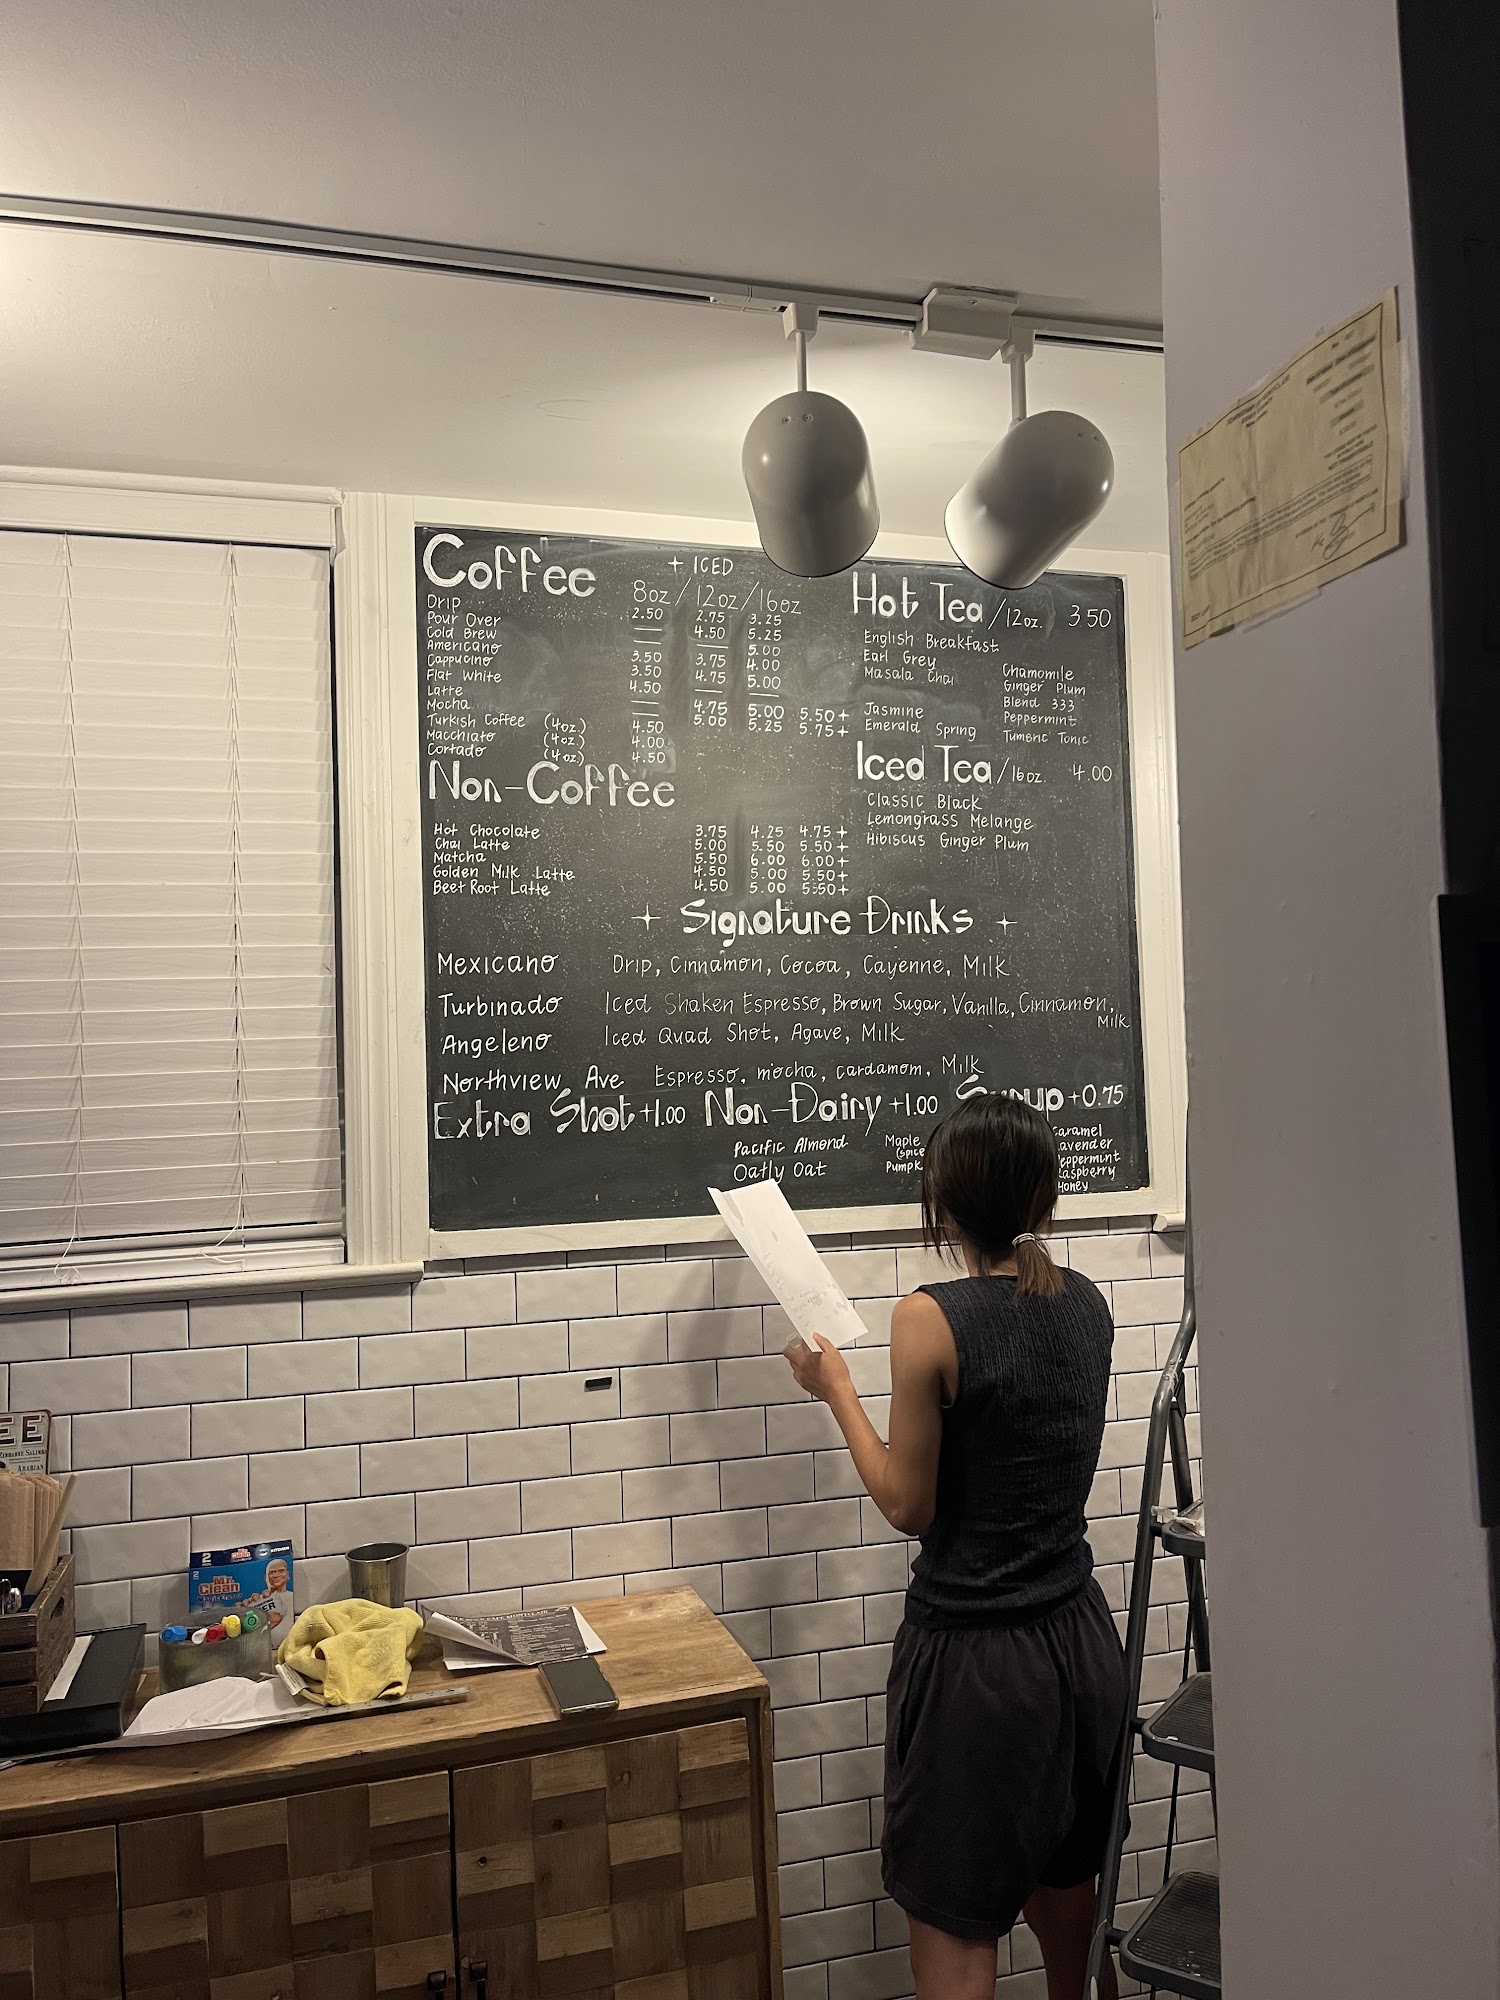 Coffee
+ ICED
8oz/12oz/16oz
Drip 2.50 2.75 3.25
Pour Over — 4.50 5.25
Cold Brew — 5.00
Americano 3.50 3.75 4.00
Cappucino 3.50 4.75 5.00
Flat White 4.50 — —
Latte — 4.75 5.00 5.50+
Mocha 5.00 5.25 5.75+
Turkish Coffee (4oz.) 4.50
Macchiato (4oz.) 4.00
Cortado (4oz) 4.50
Non-Coffee
Hot Chocolate 3.75 4.25 4.75+
Chai Latte 5.00 5.50 5.50+
Matcha 5.50 6.00 6.00+
Golden Milk Latte 4.50 5.00 5.50+
Beet Root Latte 4.50 5.00 5.50+
Hot Tea/12oz. 3.50
English Breakfast
Earl Grey
Masala Chai
Jasmine
Emerald Spring
Chamomile
Ginger Plum
Blend 333
Peppermint
Tumeric Tonic
Iced Tea/16oz. 4.00
Classic Black
Lemongrass Melange
Hibiscus Ginger Plum
Signature Drinks
Mexicano Drip, Cinnamon, Cocoa, Cayenne, Milk
Turbinado Iced Shaken Espresso, Brown Sugar, Vanilla, Cinnamon,
Milk
Angeleno Iced Quad Shot, Agave, Milk
Northview Ave Espresso, mocha, cardamom, Milk
Extra Shot +1.00 Non-Dairy +1.00 Syrup +0.75
Pacific Almond
Oatly Oat
Maple
(spice
Pumpk
aramel
avender
eppermint
aspberry
Honey
2
Mr. Clean